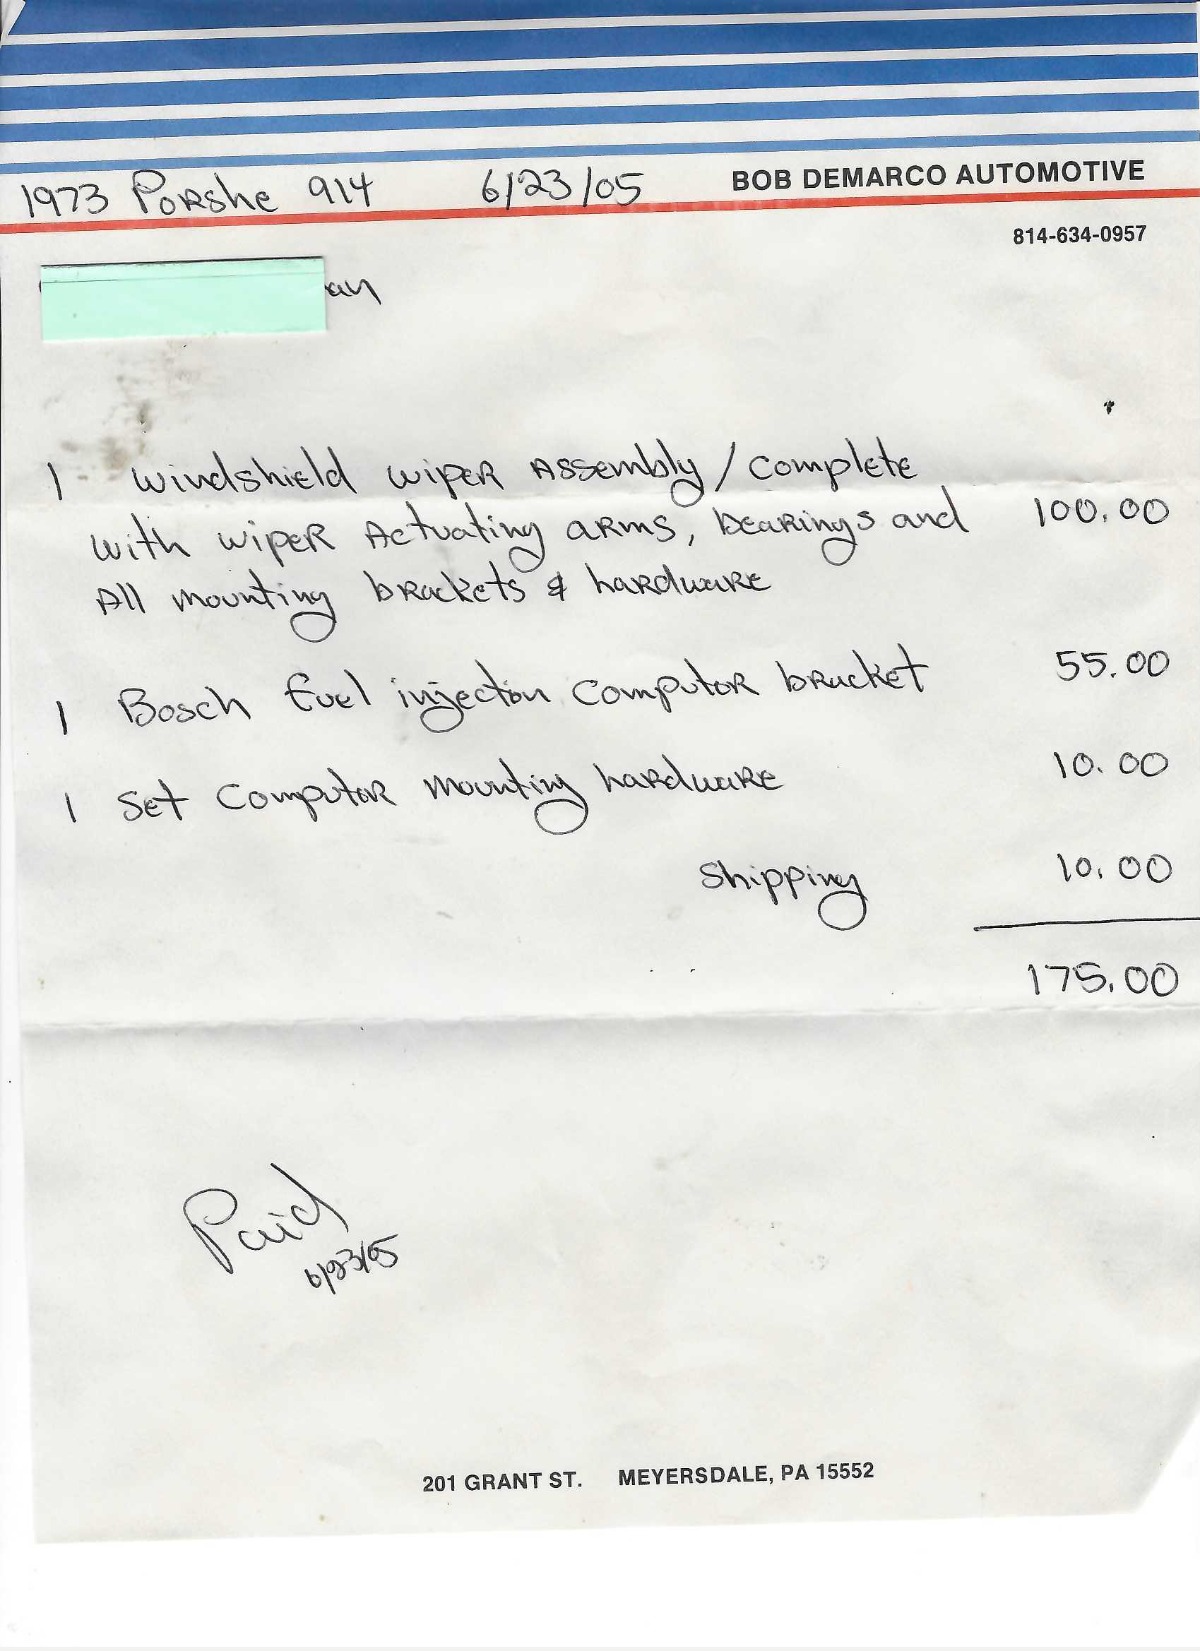 1973 Porshe 914 6/23/05 BOB DEMARCO AUTOMOTIVE
814-634-0957
1 Windshield wiper Assembly / Complete
with wiper Actuating arms, bearings and 100.00
All mounting brackets & hardware
1 Bosch fuel injection Computor bracket 55.00
1 Set Computor Mounting hardware 10.00
Shipping 10.00
175.00
Paid
6/23/05
201 GRANT ST. MEYERSDALE, PA 15552